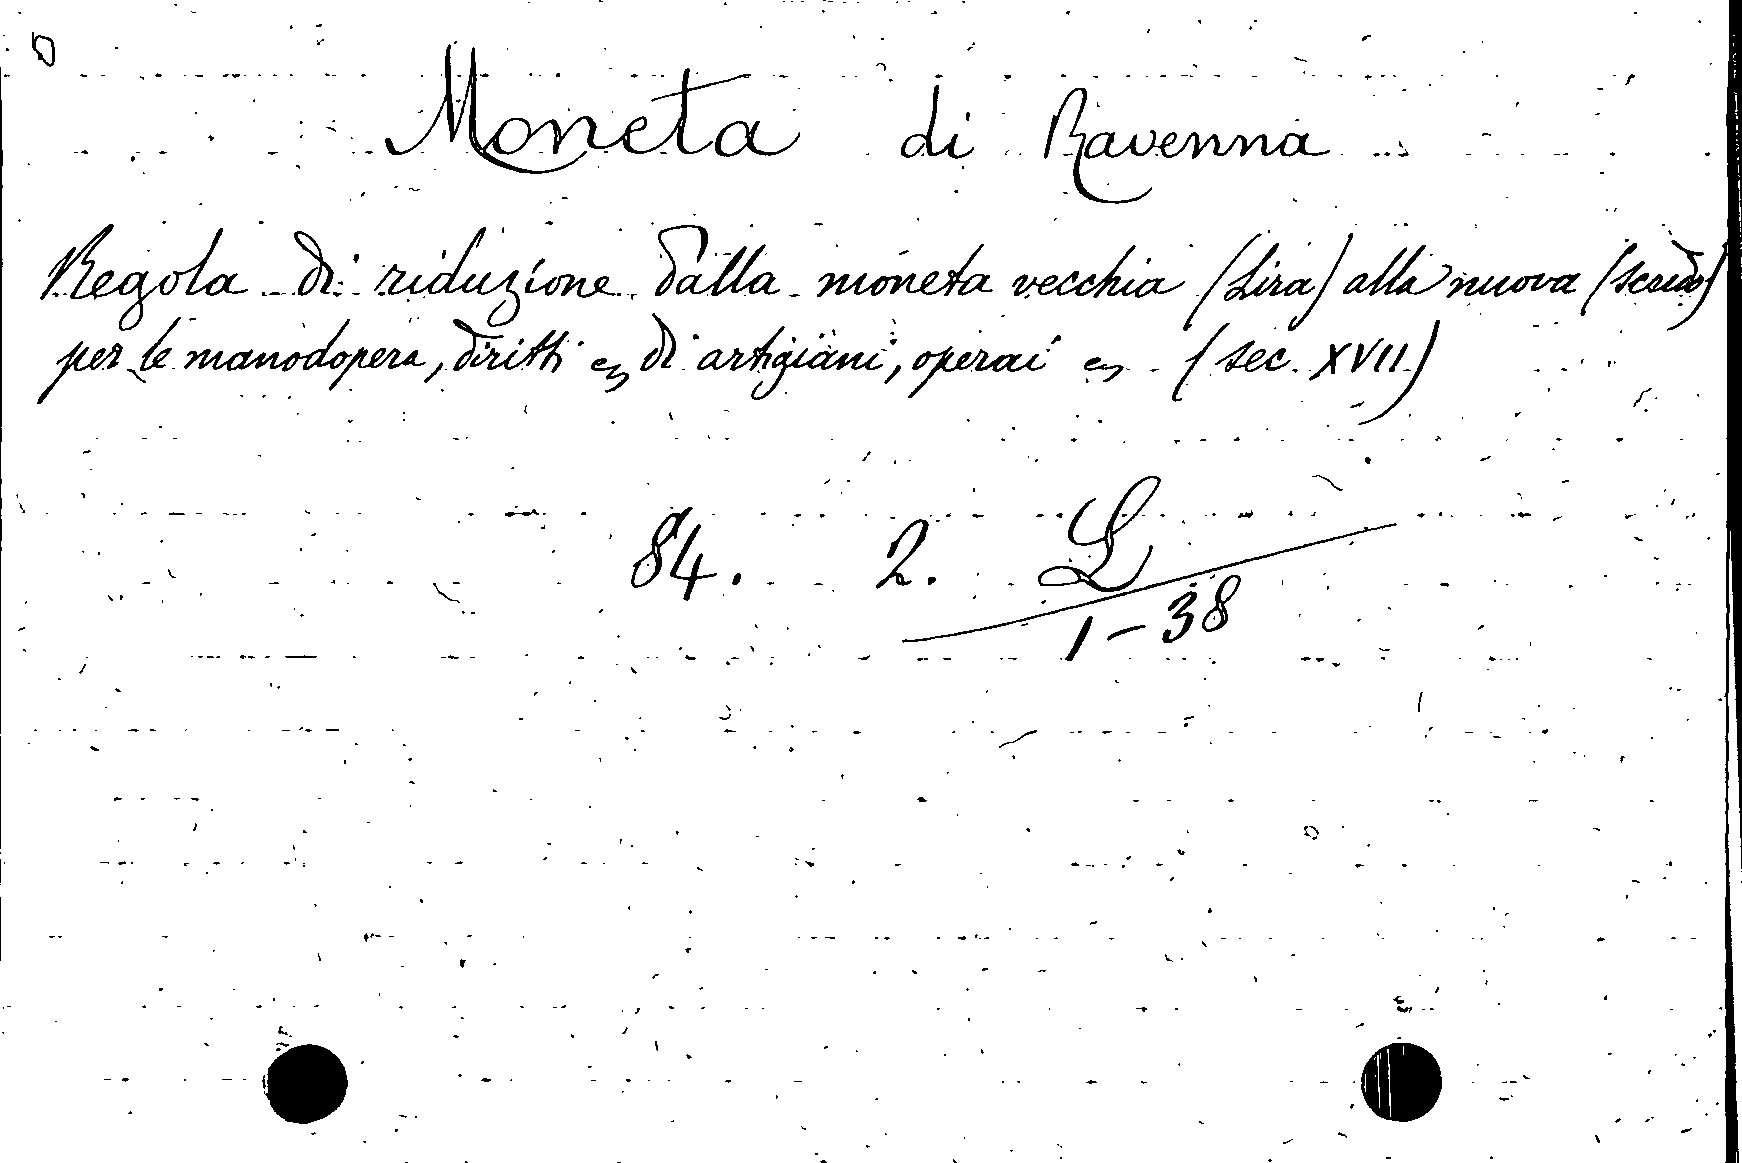 Moneta di Ravenna
Regola di riduzione dalla moneta vecchia (Lira) alla nuova (scudo)
per le manodopera, diritti ecc di artigiani, operai ecc (sec. XVII)
84. 2. L
1-38